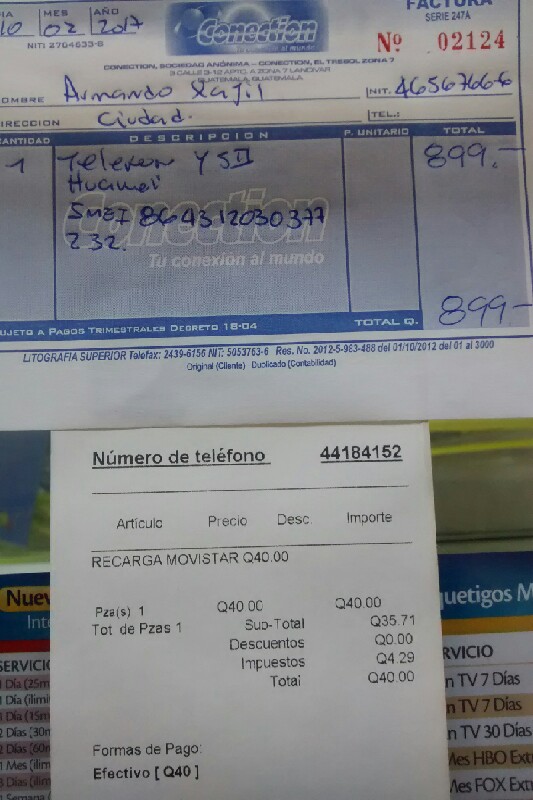 DIA MES AÑO
10 02 2017
NIT: 2704633-6
Conection
al mundo
FACTURA
SERIE 247A
Nº 02124
CONECTION, SOCIEDAD ANÓNIMA - CONECTION, EL TREBOL ZONA 7
3 CALLE 3-12 APTO. A ZONA 7 LANDIVAR
GUATEMALA, GUATEMALA
NOMBRE Armando NIT: 4656766-6
DIRECCION Ciudad. TEL.:
CANTIDAD DESCRIPCION P. UNITARIO TOTAL
1 YSII 899.-
Huawei
864312030377
232.
Conection
Tu conexión al mundo
SUJETO A PAGOS TRIMESTRALES DECRETO 18-04 TOTAL Q. 899-
LITOGRAFIA SUPERIOR Telefax: 2439-6156 NIT: 5053763-6 Res. No. 2012-5-983-488 del 01/10/2012 del 01 al 3000
Original (Cliente) Duplicado (Contabilidad)
Número de teléfono 44184152
Artículo Precio Desc. Importe
RECARGA MOVISTAR Q40.00
Pza(s) 1 Q40.00 Q40.00
Tot de Pzas 1 Sub-Total Q35.71
Descuentos Q0.00
Impuestos Q4.29
Total Q40.00
Formas de Pago:
Efectivo [ Q40 ]
Nuev
Inte
SERVICIO
1 Día (25m
1 Día (ilimi
1 Día (15m
2 Días (30m
2 Días (60m
1 Mes (ilim
3 Días (ilim
1 Semana (
quetigos M
RVICIO
n TV 7 Días
n TV 7 Dias
n TV 30 Días
Mes HBO Extr
Mes FOX Extr